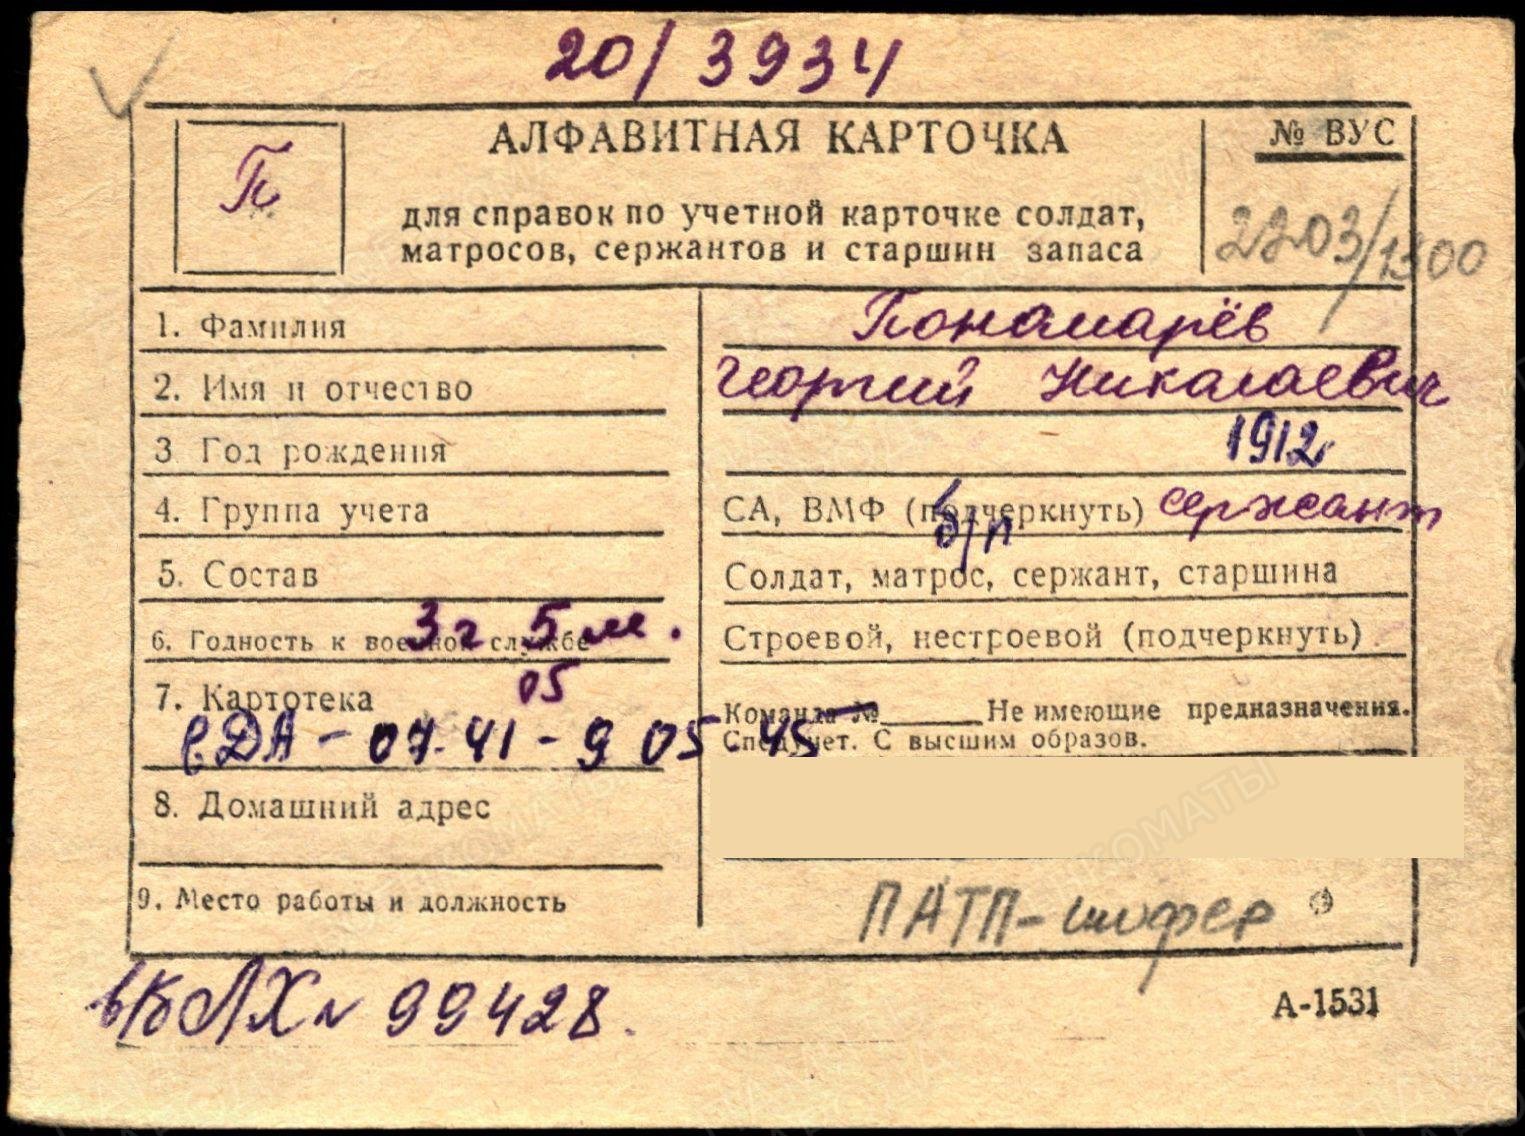 20/3934
П
АЛФАВИТНАЯ КАРТОЧКА
№ ВУС
для справок по учетной карточке солдат,
матросов, сержантов и старшин запаса
2203/1300
1. Фамилия
Пономарёв
2. Имя и отчество
Георгий Николаевич
3 Год рождения
1912
4. Группа учета
СА, ВМФ (подчеркнуть) сержант
б/п
5. Состав
Солдат, матрос, сержант, старшина
6. Годность к военной службе
3г 5м.
Строевой, нестроевой (подчеркнуть)
05
7. Картотека
Команда №______Не имеющие предназначения.
Спецучет. С высшим образов.
СДА - 07.41 - 9 05 45
8. Домашний адрес
9. Место работы и должность
ПАТП-шофер
99428.
А-1531